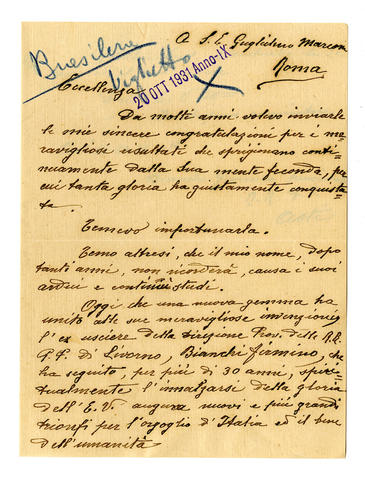 A S. E. Guglielmo Marconi
Roma
Biglietto
20 OTT 1931 Anno IX
Eccellenza
Da molti anni volevo inviarle
le mie sincere congratulazioni per i me-
ravigliosi risultati che sprigionano conti-
nuamente dalla Sua mente feconda, per
cui tanta gloria ha giustamente conquista-
ta.
Temevo importunarla.
Temo altresì, che il mio nome, dopo
tanti anni, non ricorderà, causa i suoi
ardui e continui studi.
Oggi che una nuova gemma ha
unito alle sue meravigliose invenzioni,
l'ex usciere della Direzione Prov. delle R.R.
P.P. di Livorno, Bianchi Firmino, che
ha seguito, per più di 30 anni, spiri-
tualmente l'innalzarsi della gloria
dell'E. V. augura nuovi e più grandi
trionfi per l'orgoglio d'Italia ed il bene
dell'umanità